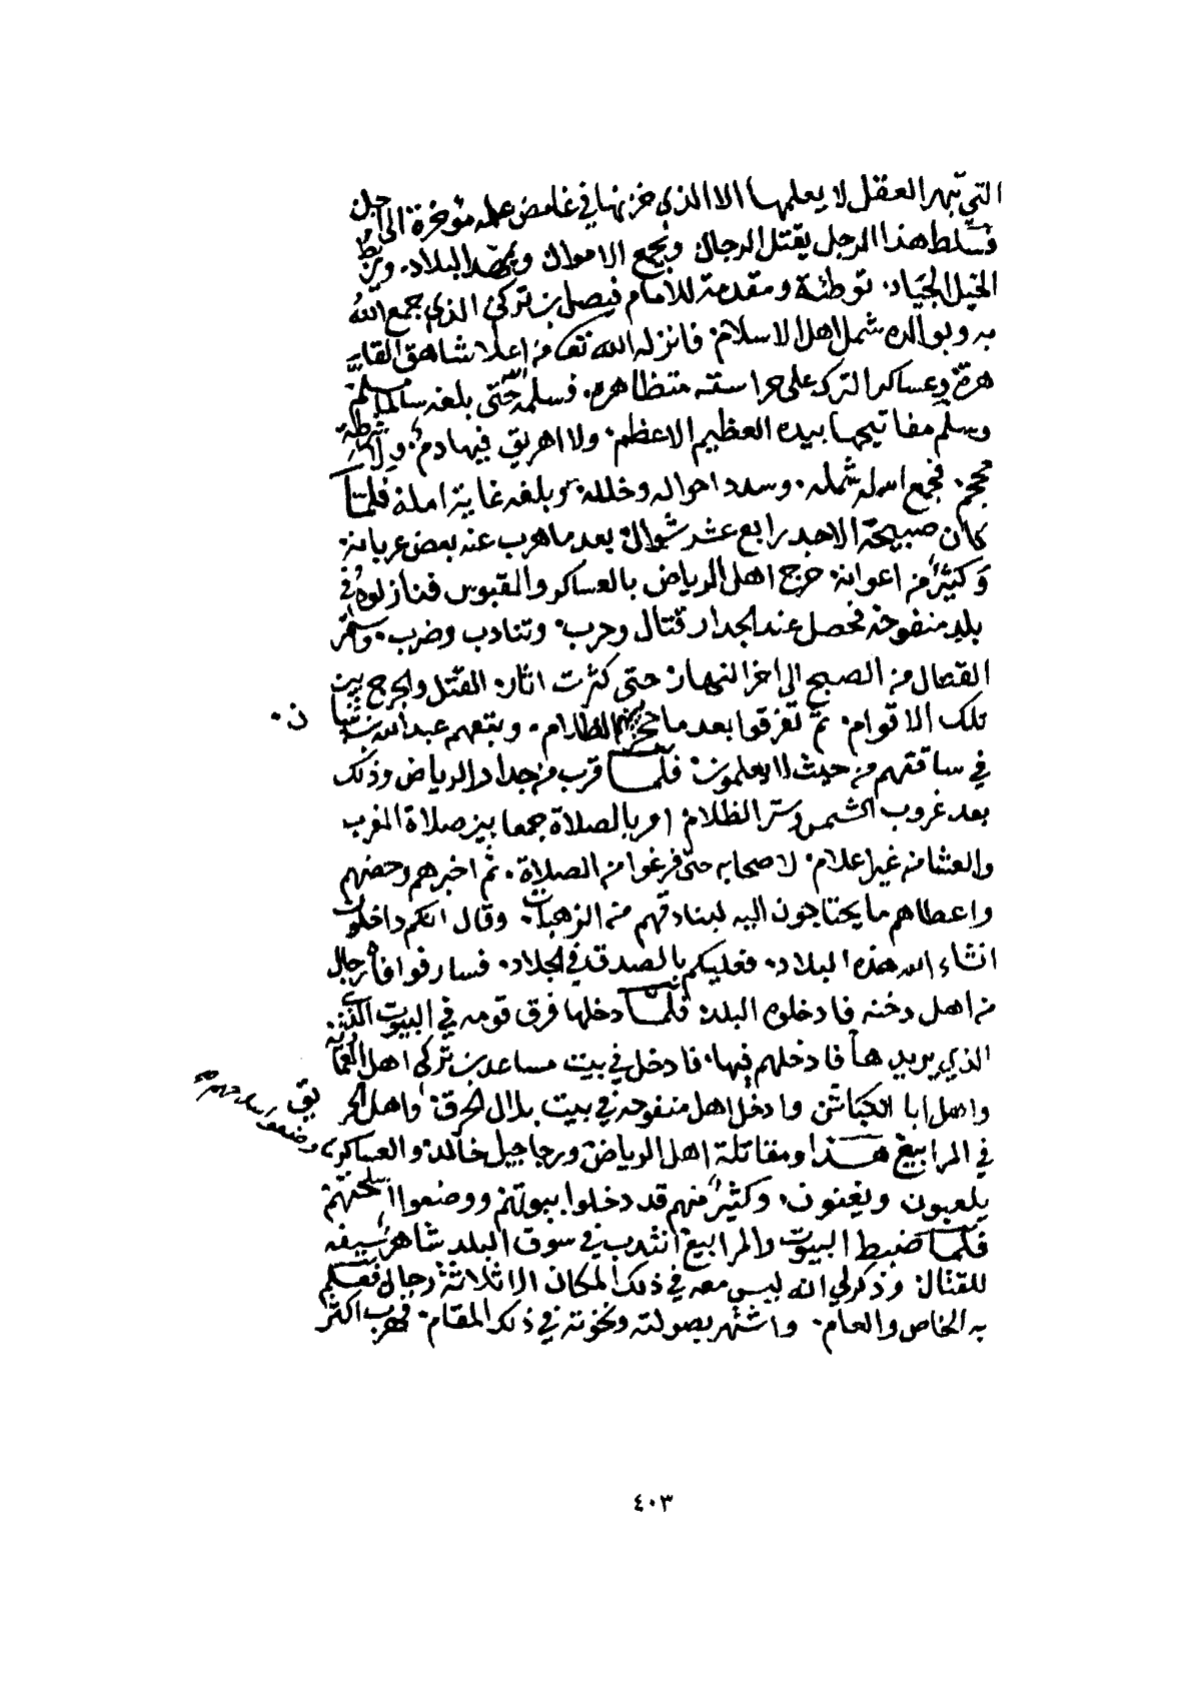 التي تبهر العقل لا يعلمها الا الذي خزنها في غامض علمه مؤخرة الى اجل
فسلط هذا الرجل يقتل الرجال ويجمع الاموال ويمهد البلاد، ويربط
الخيل الجياد، توطئة ومقدمة للامام فيصل بن تركي الذي جمع الله
به وبوالده شمل اهل الاسلام، فانزله الله تعا من اعلا شاهق القا
هرة وعساكر الترك على حراسته متظاهرة، فسلمه الله حتى بلغه سالما
وسلم مفاتيحها بيده العظيم الاعظم، ولا اهريق فيها دم، ولا شرطة
محجم، فجمع اسله شمله، وسدد احواله وخلله، وبلغه غاية امله، فلما
كان صبيحة الاحد رابع عشر شوال، بعد ما هرب عنه بعض عربانه،
وكثير من اعوانه، خرج اهل الرياض بالعساكر والقبوس فنازلوه في
بلد منفوخه فحصل عند الجدار قتال وحرب، وتنادب وضرب،
القتال من الصبح الى اخر النهار، حتى كثرت اثار، القتل والجرح بين
تلك الاقوام، ثم تفرقوا بعد ما حجز بينهم الظلام، وتبعهم عبدالله بن ثنيان،
في ساقتهم من حيث لا يعلمون، فلما قرب من جدار الرياض وذلك
بعد غروب الشمس وستر الظلام، امر بالصلاة جمعا بين صلاة المغرب
والعشا من غير اعلام، لاصحابه حتى فرغوا من الصلاة، ثم اخبرهم وحضهم
واعطاهم ما يحتاجون اليه لبنادقهم من الزهبات، وقال انكم داخلون
انشاء الله هذه البلاد، فعليكم بالصدق في الجلاد، فسار فوافاه رجال
من اهل دخنه فادخلوه البلد، فلما دخلها فرق قومه في البيوت
الذي يريدها فادخلهم فيها، فادخل في بيت مساعد بن تركي اهل
واهل ابا الكباش، وادخل اهل منفوحه في بيت بلال الحرق، واهل الحريق
في المرابيع هذا ومقاتلة اهل الرياض ورجاجيل خالد، والعساكر، وضعوا سلاحهم
يلعبون ويغنون، وكثير منهم قد دخلوا بيوتهم ووضعوا اسلحتهم
فلما ضبط البيوت والمرابيع انتدب في سوق البلد شاهر سيفه
للقتال، وذكر لي انه ليس معه في ذلك المكان الا ثلاثة رجال، فعلم
به الخاص والعام، واشتهر بصولته ونخوته في ذلك المقام، فهرب اكثر
٤٠٣